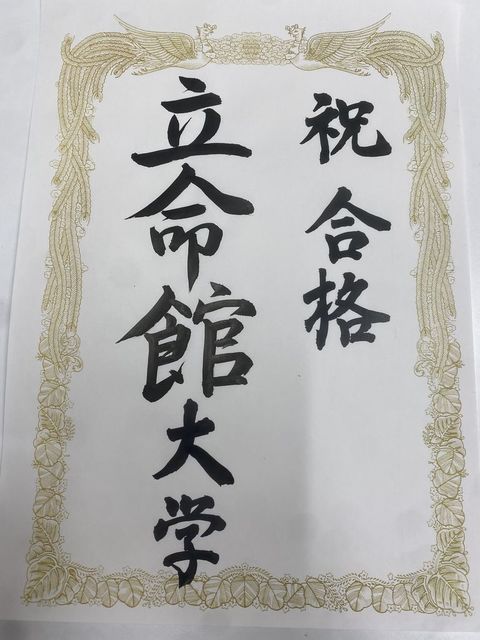 祝 合格
立命館大学